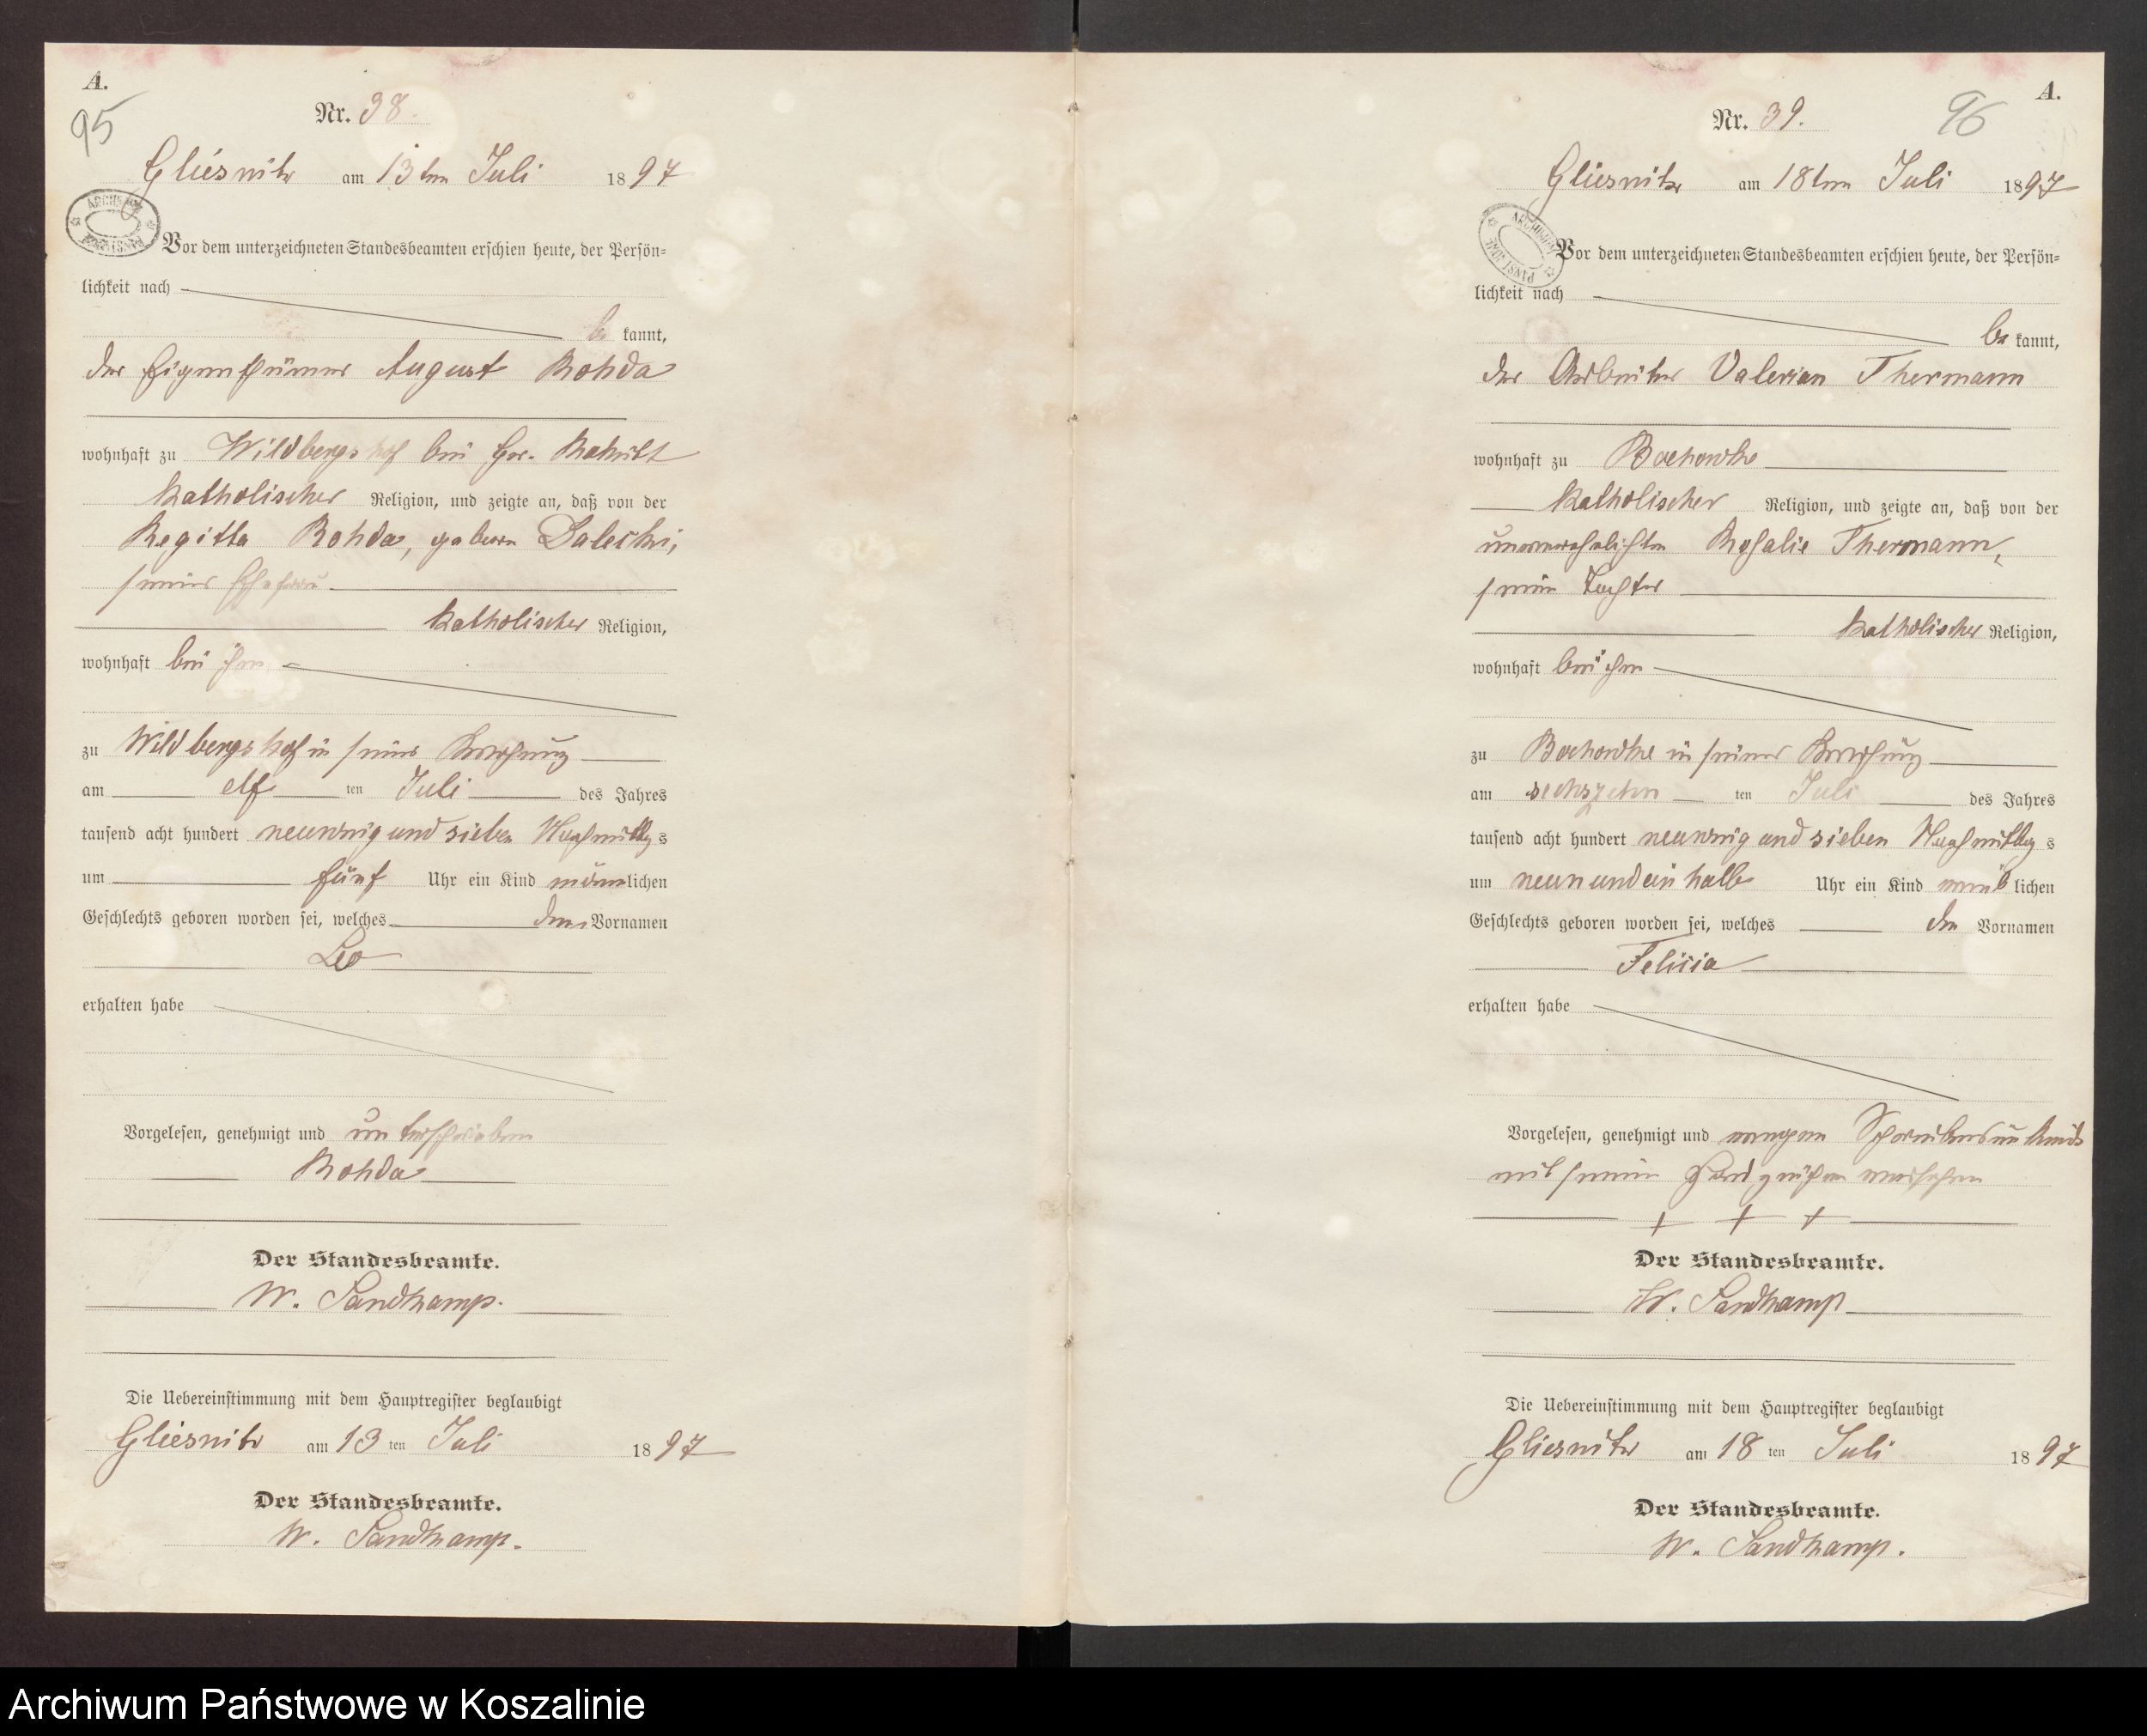 A.
95
Nr. 38.
Gliesnitz am 13ten Juli 1897
ARCHIWUM PAŃSTWOWE
Vor dem unterzeichneten Standesbeamten erschien heute, der Persön=
lichkeit nach
be kannt,
der Eigenthümer August Rohda
wohnhaft zu Wildbergshof bei
katholischer Religion, und zeigte an, daß von der
Regitta Rohda, geborn
seiner Ehefrau
katholischer Religion,
wohnhaft bei ihm
zu Wildbergshof in seiner Behausung
am elf ten Juli des Jahres
tausend acht hundert neunzig und sieben Nachmittags
um fünf Uhr ein Kind männlichen
Geschlechts geboren worden sei, welches den Vornamen
Leo
erhalten habe
Vorgelesen, genehmigt und unterschrieben
Rohda
Der Standesbeamte.
W. Sandkamp.
Die Uebereinstimmung mit dem Hauptregister beglaubigt
Gliesnitz am 13 ten Juli 1897
Der Standesbeamte.
W. Sandkamp.
A.
96
Nr. 39.
Gliesnitz am 18ten Juli 1897
ARCHIWUM PAŃSTWOWE
Vor dem unterzeichneten Standesbeamten erschien heute, der Persön=
lichkeit nach
be kannt,
der Arbeiter Valerian Thermann
wohnhaft zu Bochowke
katholischer Religion, und zeigte an, daß von der
unverehelichten Rosalie Thermann,
seine Tochter
katholischer Religion,
wohnhaft bei ihm
zu Bochowke in seiner Behausung
am sechszehn ten Juli des Jahres
tausend acht hundert neunzig und sieben Nachmittags
um neun und ein halb Uhr ein Kind weiblichen
Geschlechts geboren worden sei, welches den Vornamen
Felicia
erhalten habe
Vorgelesen, genehmigt und wegen Schreibensunkunde
mit seinem Handzeichen versehen
+ + +
Der Standesbeamte.
W. Sandkamp
Die Uebereinstimmung mit dem Hauptregister beglaubigt
Gliesnitz am 18 ten Juli 1897
Der Standesbeamte.
W. Sandkamp.
Archiwum Państwowe w Koszalinie